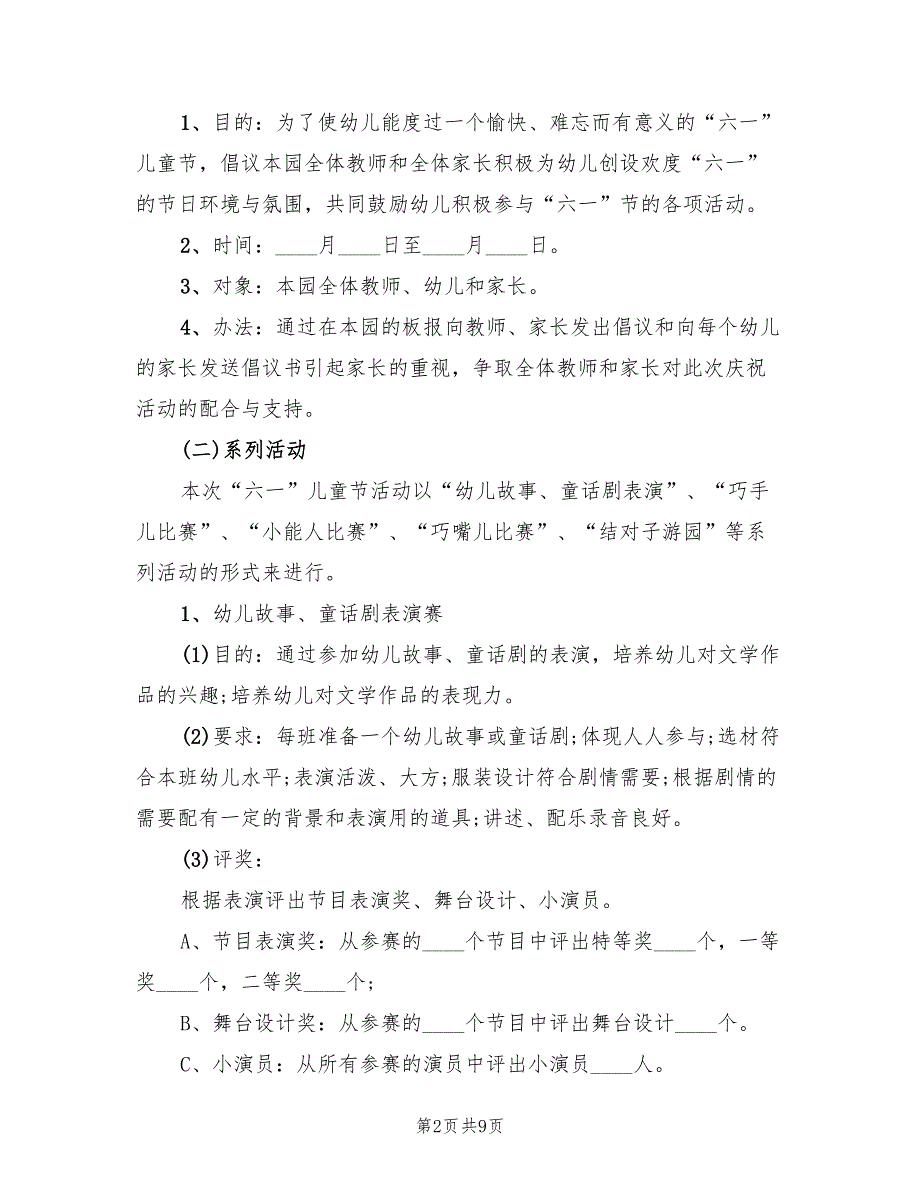 1、目的：为了使幼儿能度过一个愉快、难忘而有意义的“六一”
儿童节，倡议本园全体教师和全体家长积极为幼儿创设欢度“六一”
的节日环境与氛围，共同鼓励幼儿积极参与“六一”节的各项活动。
2、时间：____月____日至____月____日。
3、对象：本园全体教师、幼儿和家长。
4、办法：通过在本园的板报向教师、家长发出倡议和向每个幼儿
的家长发送倡议书引起家长的重视，争取全体教师和家长对此次庆祝
活动的配合与支持。
(二)系列活动
本次“六一”儿童节活动以“幼儿故事、童话剧表演”、“巧手
儿比赛”、“小能人比赛”、“巧嘴儿比赛”、“结对子游园”等系
列活动的形式来进行。
1、幼儿故事、童话剧表演赛
(1)目的：通过参加幼儿故事、童话剧的表演，培养幼儿对文学作
品的兴趣;培养幼儿对文学作品的表现力。
(2)要求：每班准备一个幼儿故事或童话剧;体现人人参与;选材符
合本班幼儿水平;表演活泼、大方;服装设计符合剧情需要;根据剧情的
需要配有一定的背景和表演用的道具;讲述、配乐录音良好。
(3)评奖：
根据表演评出节目表演奖、舞台设计、小演员。
A、节目表演奖：从参赛的____个节目中评出特等奖____个，一等
奖____个，二等奖____个;
B、舞台设计奖：从参赛的____个节目中评出舞台设计____个。
C、小演员：从所有参赛的演员中评出小演员____人。
第2页共9页